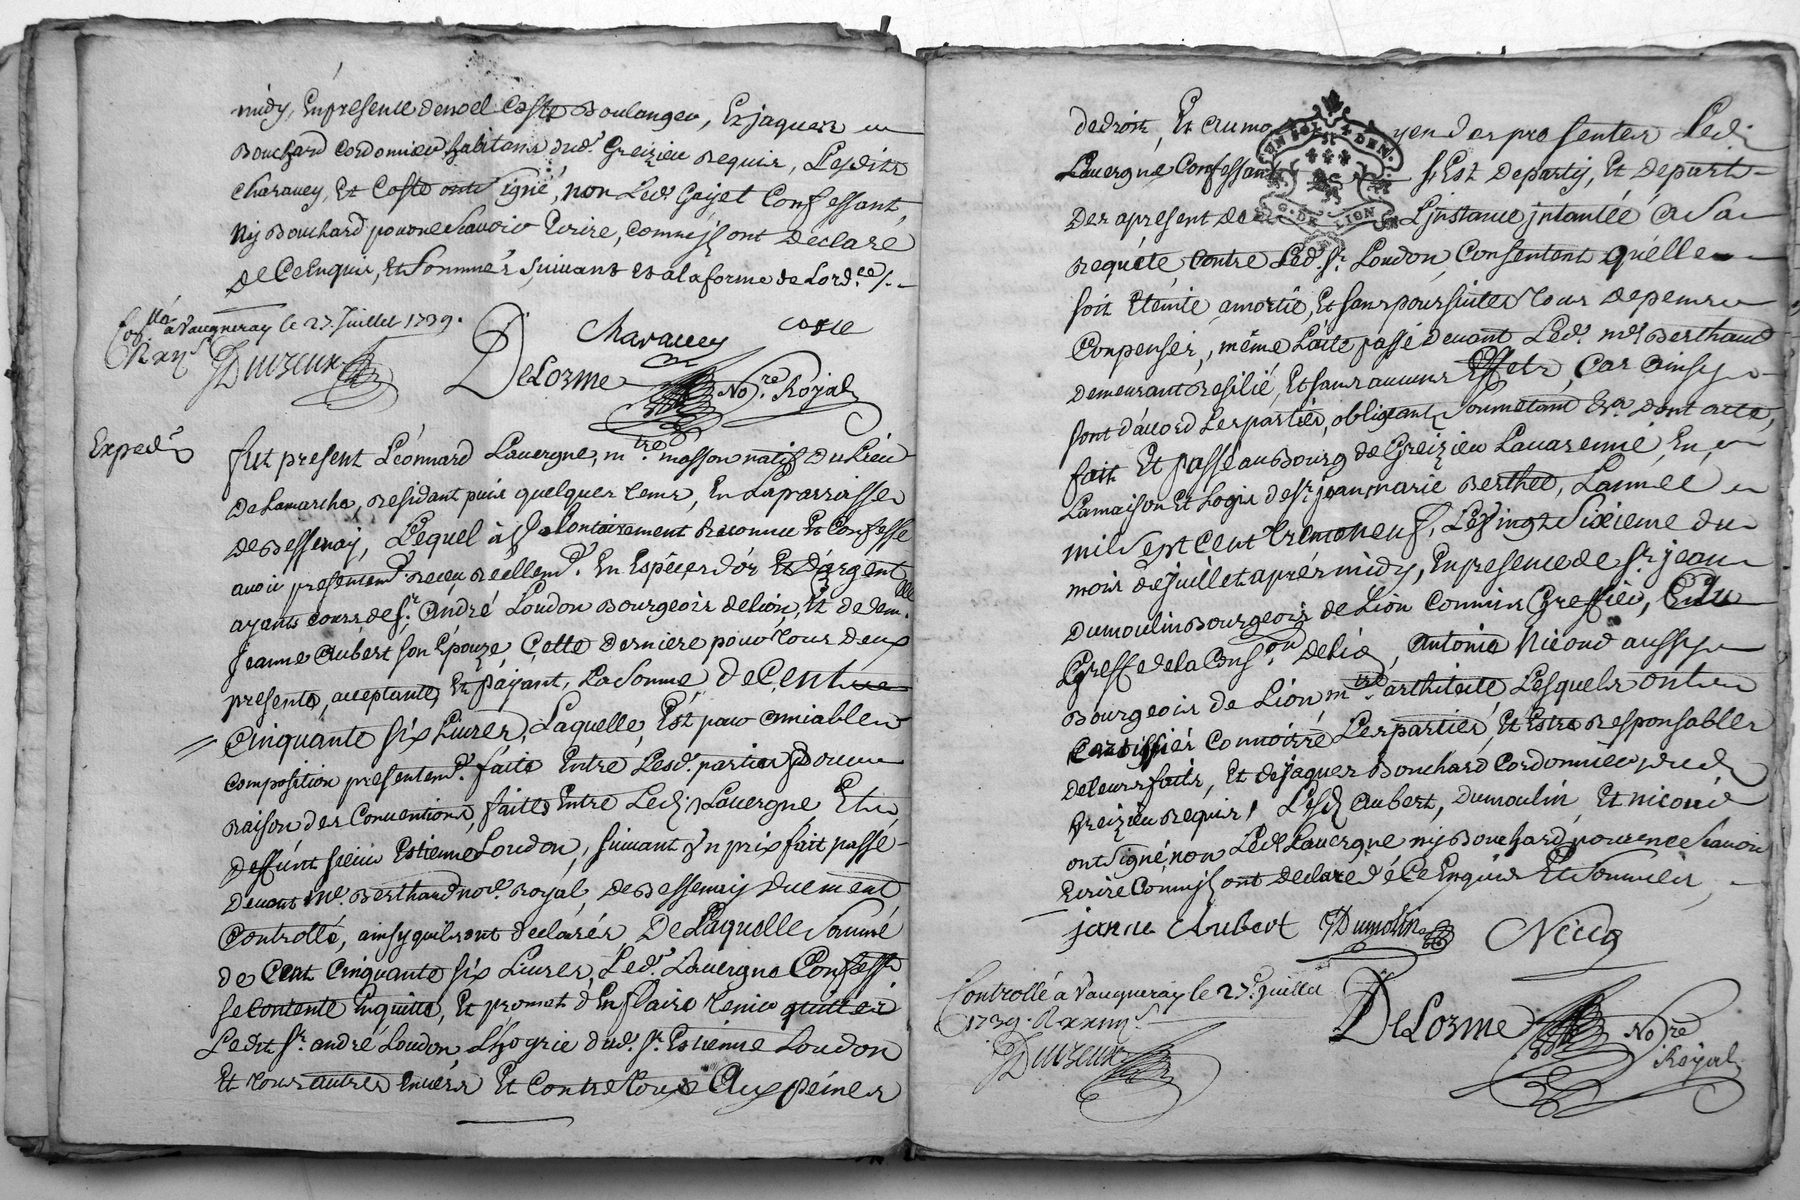 midy, En presence de noel Coste Boulanger, Et jaques
Bouchard Cordonnier habitans dud. Greizieu requis, Lesdits
Charavey, Et Coste ont signé, non Led. Gayet Confessant,
Ny Bouchard pour ne scavoir Ecrire, comme ils ont Declaré
de Ce Enquis, et sommés suivant et a la forme de Lord.ce /.
Coll.lé a Vaugneray le 27. Juillet 1739.
Duizeux
Charavey
Coste
DeLorme
No.re Royal
Exped.
fut present Léonnard Lauergne, m.tre masson natif du Lieu
de Lamarche, residant puis quelques tems, En La parroisse
de Bessenay, Lequel à Volontairement Reconnu Et Confessé
avoir presentem.t receu reellem.t En Espéces d'or Et d'argent
ayants cours de Sr. André Loudon Bourgeois de lion, Et de dem.lle
jeanne Aubert son Épouze, Cette derniere pour tous deux
presente, acceptante, Et payant, La Somme de Cent
Cinquante six Livres, Laquelle Est pour amiable
Composition presentem.t faite Entre Lesd. parties pour
raison des Conventions, faites Entre Led. Lauergne, Et
deffunt sieur Estienne Loudon, suivant Vn prix fait passé
Devant M.e Berthaud no.re Royal, de Bessenay duement
Controllé, ainsy quils ont declarés De Laquelle Somme
de Cent Cinquante six Livres, Led. Lauergne Confesse
se Contente En quitte, Et promet d'En faire tenir quitter
Ledit Sr. andré Loudon, L'hoyrie dud. Sr. Estienne Loudon
Et tous autres Envers Et Contre tous Aux peines
de droit, Et au mo yen des presentes Led.
Lauergne Confessant s'Est Departy, Et départ
Des apresent de L'jnstance jntantée a Sa
requéte contre Led. Sr. Loudon, Consentant quelle
soit Eteinte, amortie, Et sans poursuites tous depens
Conpensés, même L'acte passé devant Led. M.e Berthaud
Demeurant resilié, Et sans aucuns Effets, Car ainsy
sont d'accord Les parties, obligeant Soumetant &.a dont acte,
fait Et passé au Bourg de Greizieu Lauarenne, En
La maison Et Logis de Sr. jean marie Berthet, L'année
mil Sept Cent trente neuf, Le Vingt Sixieme du
mois de juillet aprés midy, En presence de Sr. jean
Dumoulin Bourgeois de Lion Commis Greffier, Au
Greffe de la Cons.on de lion, Antoine Nicoud aussy
Bourgeois de Lion, m.tre architecte, Lesquels ont
Certiffiés Connoitre Les parties, Et Estre Responsables
de leurs faits, Et de jaques Bouchard Cordonnier dud.
Greizieu requis, Lesd. Aubert, Dumoulin, Et nicoud
ont Signé non Led. Lauergne ny Bouchard, pour ne Scavoir
Ecrire Comme ils ont declaré de Ce Enquis Et Sommés
janne Aubert Dumolin
Controllé a Vaugneray le 27. Juillet
1739.
Duizeux
DeLorme
No.re
Royal